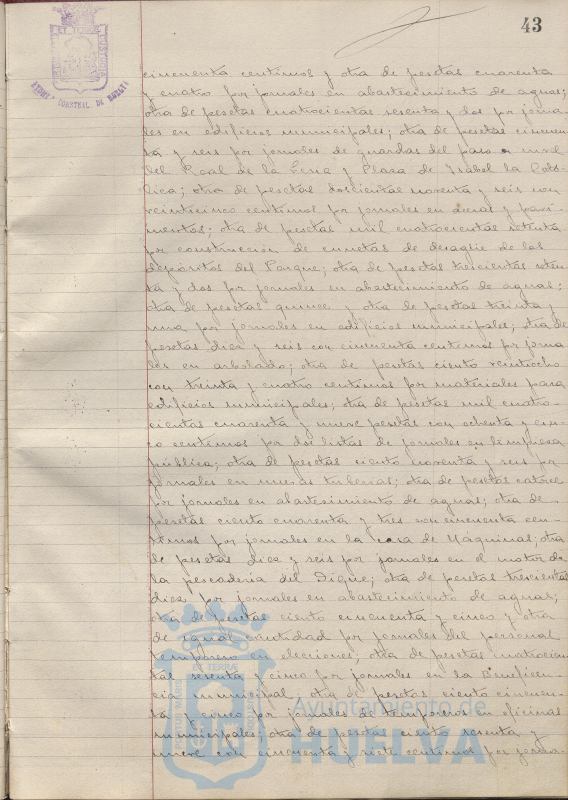 43
cincuenta centimos y otra de pesetas cuarenta
y cuatro por jornales en abastecimiento de aguas;
otra de pesetas cuatrocientas sesenta y dos por jorna-
les en edificios municipales; otra de pesetas cincuen-
ta y seis por jornales de guardas del paso a nivel
del Real de la Feria y Plaza de Isabel la Cato-
lica; otra de pesetas doscientas noventa y seis con
veinticinco centimos por jornales en aceras y pavi-
mentos; otra de pesetas mil cuatrocientas setenta
por construcción de cunetas de desagüe de los
depósitos del Parque; otra de pesetas trescientas seten-
ta y dos por jornales en abastecimiento de aguas;
otra de pesetas quince y otra de pesetas treinta y
una por jornales en edificios municipales; otra de
pesetas diez y seis con cincuenta centimos por jorna-
les en arbolado; otra de pesetas ciento veintiocho
con treinta y cuatro centimos por materiales para
edificios municipales; otra de pesetas mil cuatro-
cientas cuarenta y nueve pesetas con ochenta y cin-
co centimos por dos listas de jornales en limpieza
pública; otra de pesetas ciento noventa y seis por
jornales en nuevas tuberias; otra de pesetas catorce
por jornales en abastecimiento de aguas; otra de
pesetas ciento cuarenta y tres con cincuenta cen-
timos por jornales en la casa de Máquinas; otra
de pesetas diez y seis por jornales en el motor de
la pescaderia del Dique; otra de pesetas trescientas
diez por jornales en abastecimiento de aguas;
otra de pesetas ciento cincuenta y cinco y otra
de igual cantidad por jornales del personal
temporero en elecciones; otra de pesetas cuatrocien-
tas sesenta y cinco por jornales en la Beneficen-
cia municipal, otra de pesetas ciento cincuen-
ta y cinco por jornales de temporeros en oficinas
municipales; otra de pesetas ciento sesenta y
nueve con cincuenta y siete centimos por jorna-
Ayuntamiento de
HUELVA